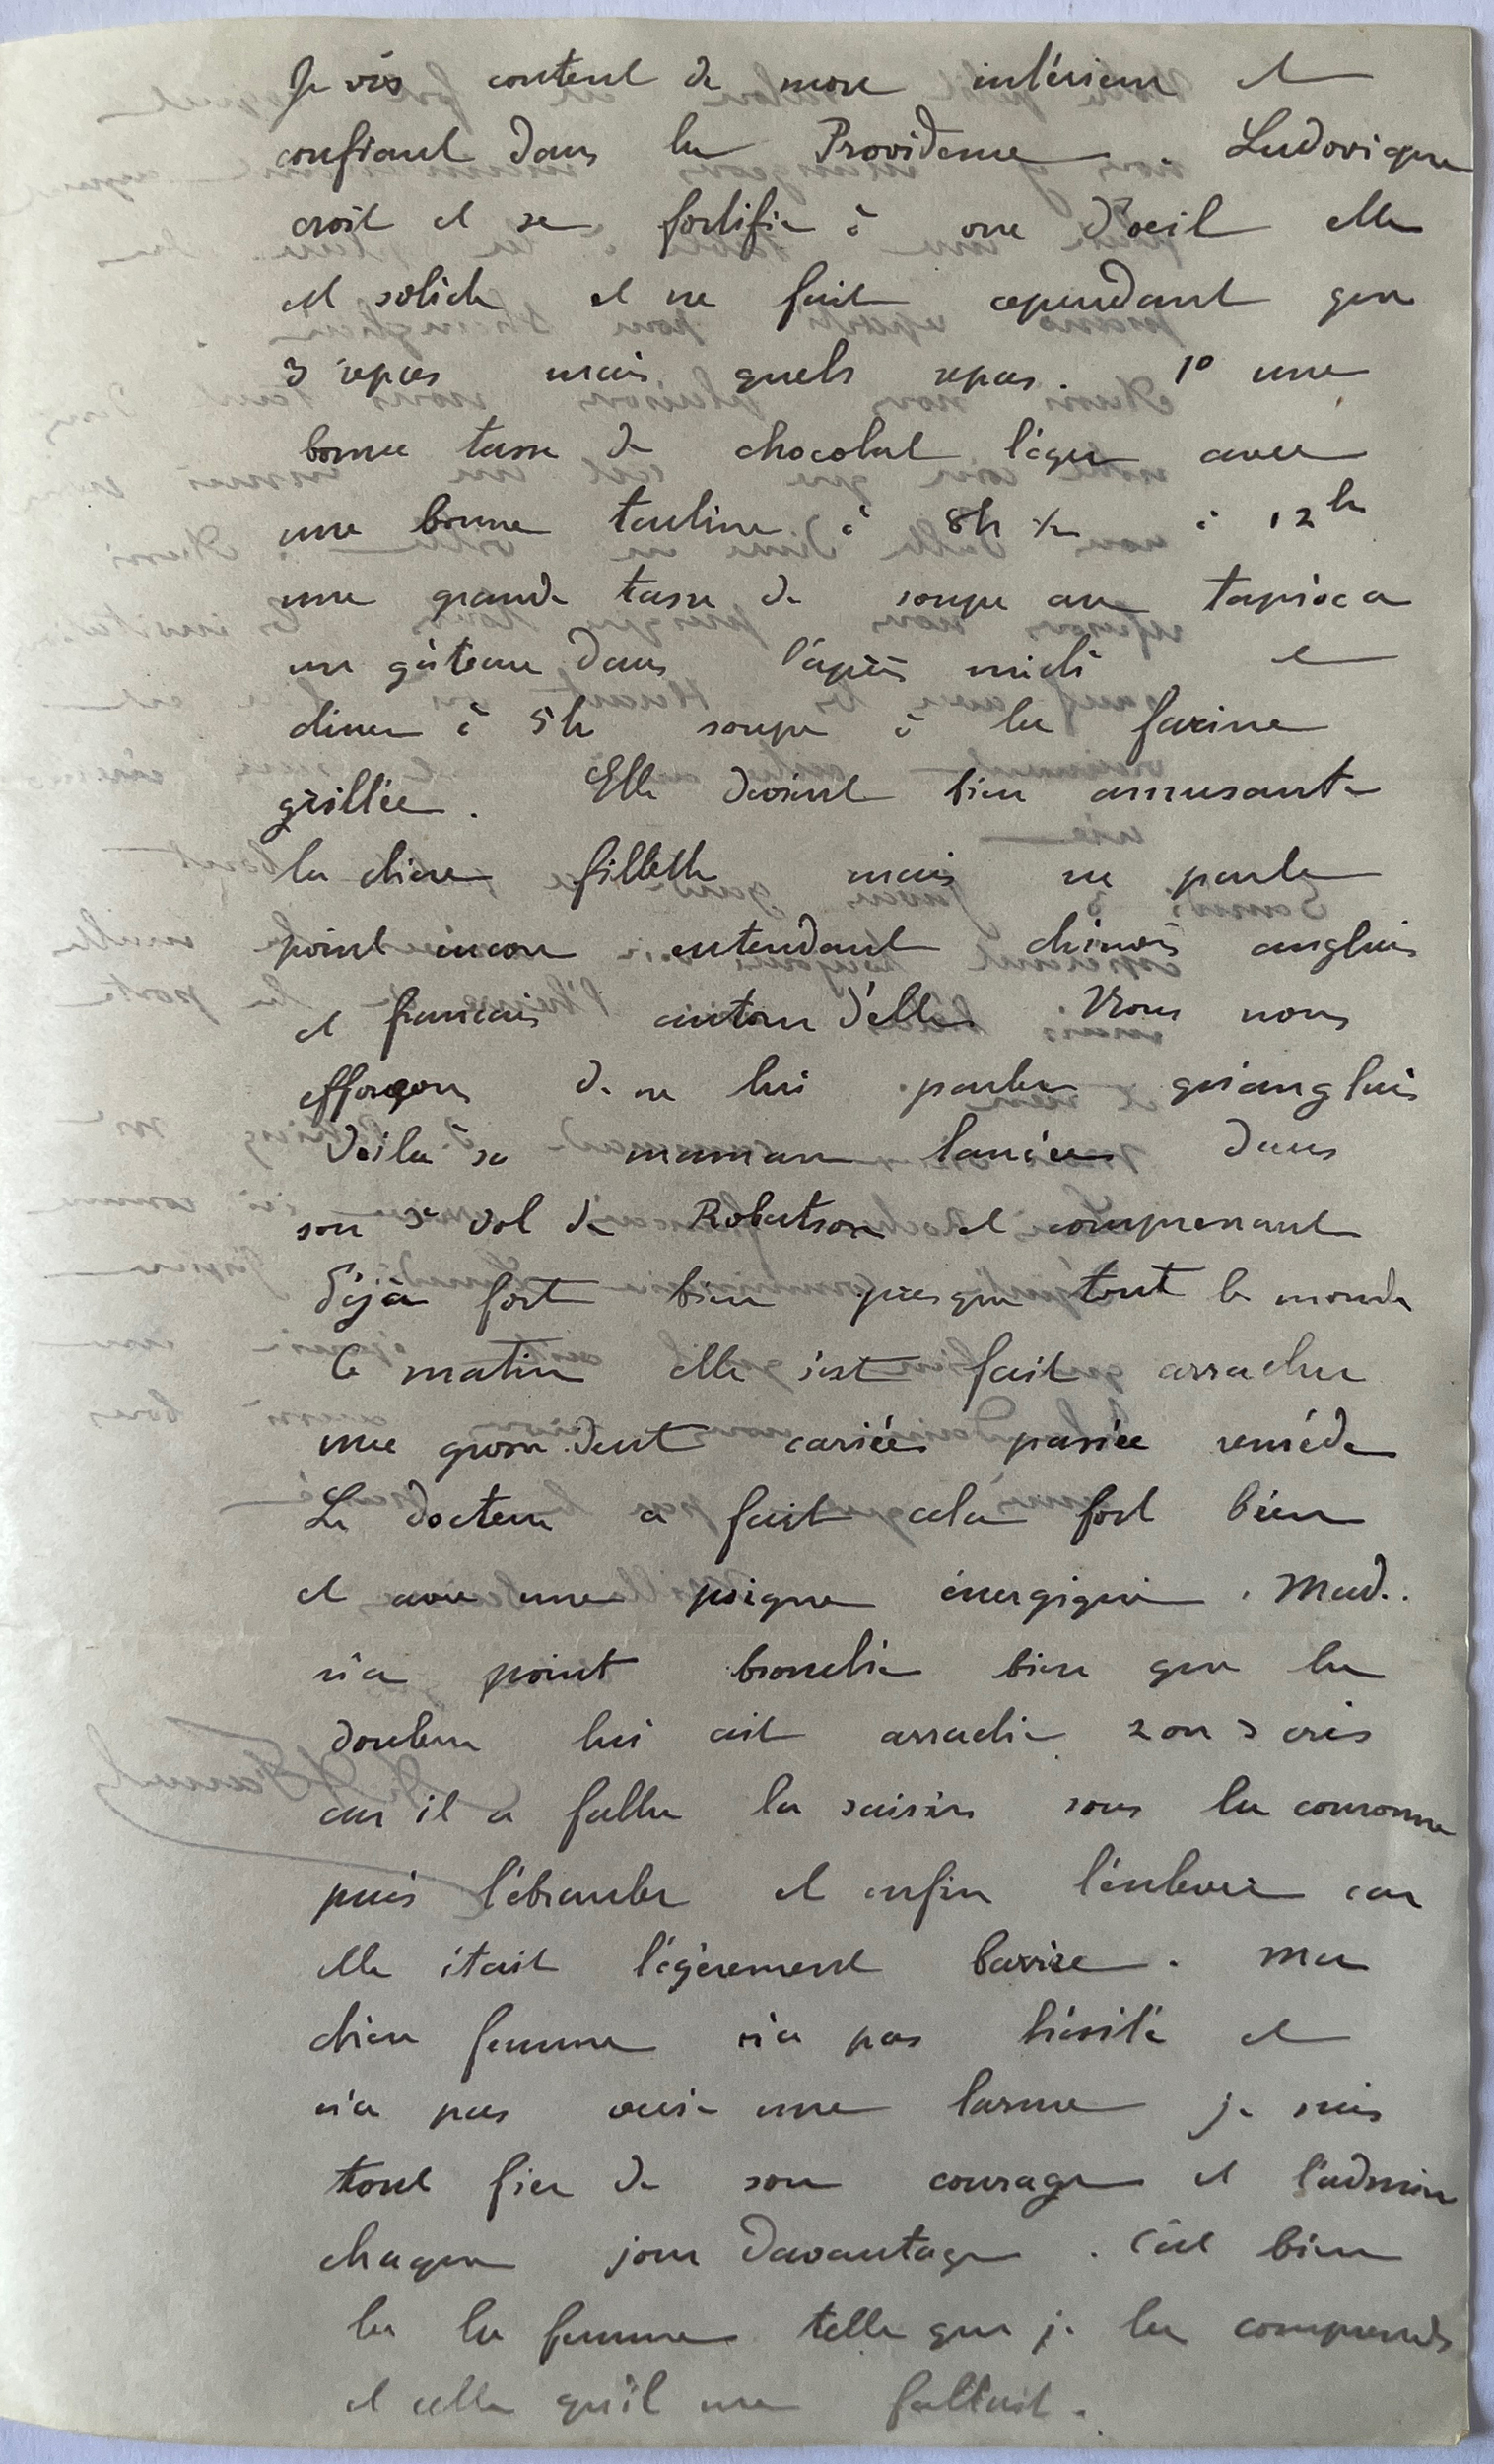 Je vis content de mon intérieur et
confiant dans la Providence. Ludovique
croit et se fortifie à vue d'oeil elle
est solide et ne fait cependant que
3 repas mais quels repas. 1° une
bonne tasse de chocolat léger avec
une bonne tartine à 8h ½ à 12h
une grande tasse de soupe au tapioca
un gâteau dans l'après midi et
diner à 5h soupe à la farine
grillée. Elle devient bien amusante
la chère fillette mais ne parle
point encore entendant chinois anglais
et francais autour d'elle. Nous nous
efforçons de ne lui parler qu'anglais
Voila sa maman lancée dans
son 3e vol de Robertson et comprenant
déjà fort bien presque tout le monde
Ce matin elle s'est fait arracher
une grosse dent cariée passée remède
Le docteur a fait cela fort bien
et avec une poigne énergique. Mad..
n'a point bronché bien que la
douleur lui ait arraché 2 ou 3 cris
car il a fallu la saisir sous la couronne
puis l'ébranler et enfin l'enlever car
elle était légèrement barrée. Ma
chère femme n'a pas hésité et
n'a pas versé une larme je suis
tout fier de son courage et l'admire
chaque jour davantage. C'est bien
la la femme telle que je la comprends
et celle qu'il me fallait.